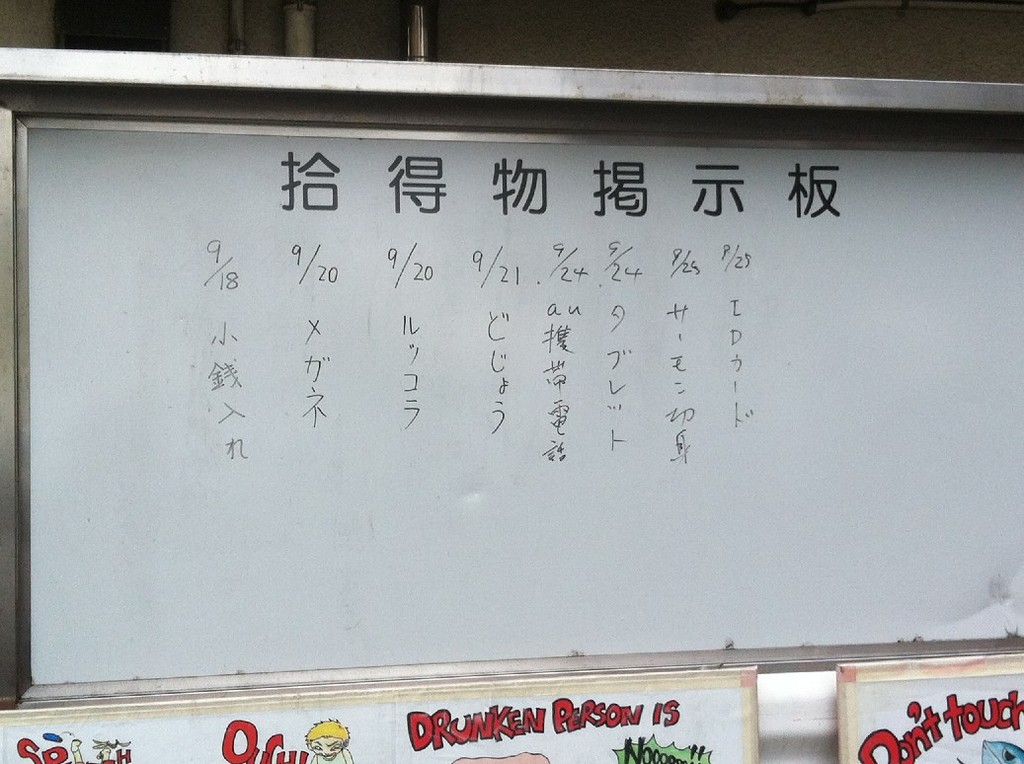 拾得物掲示板
9/18 小銭入れ
9/20 メガネ
9/20 ルッコラ
9/21 どじょう
9/24 au携帯電話
9/24 タブレット
9/25 サーモン切身
9/25 IDカード
OUCH!
DRUNKEN PERSON IS
Don't touch